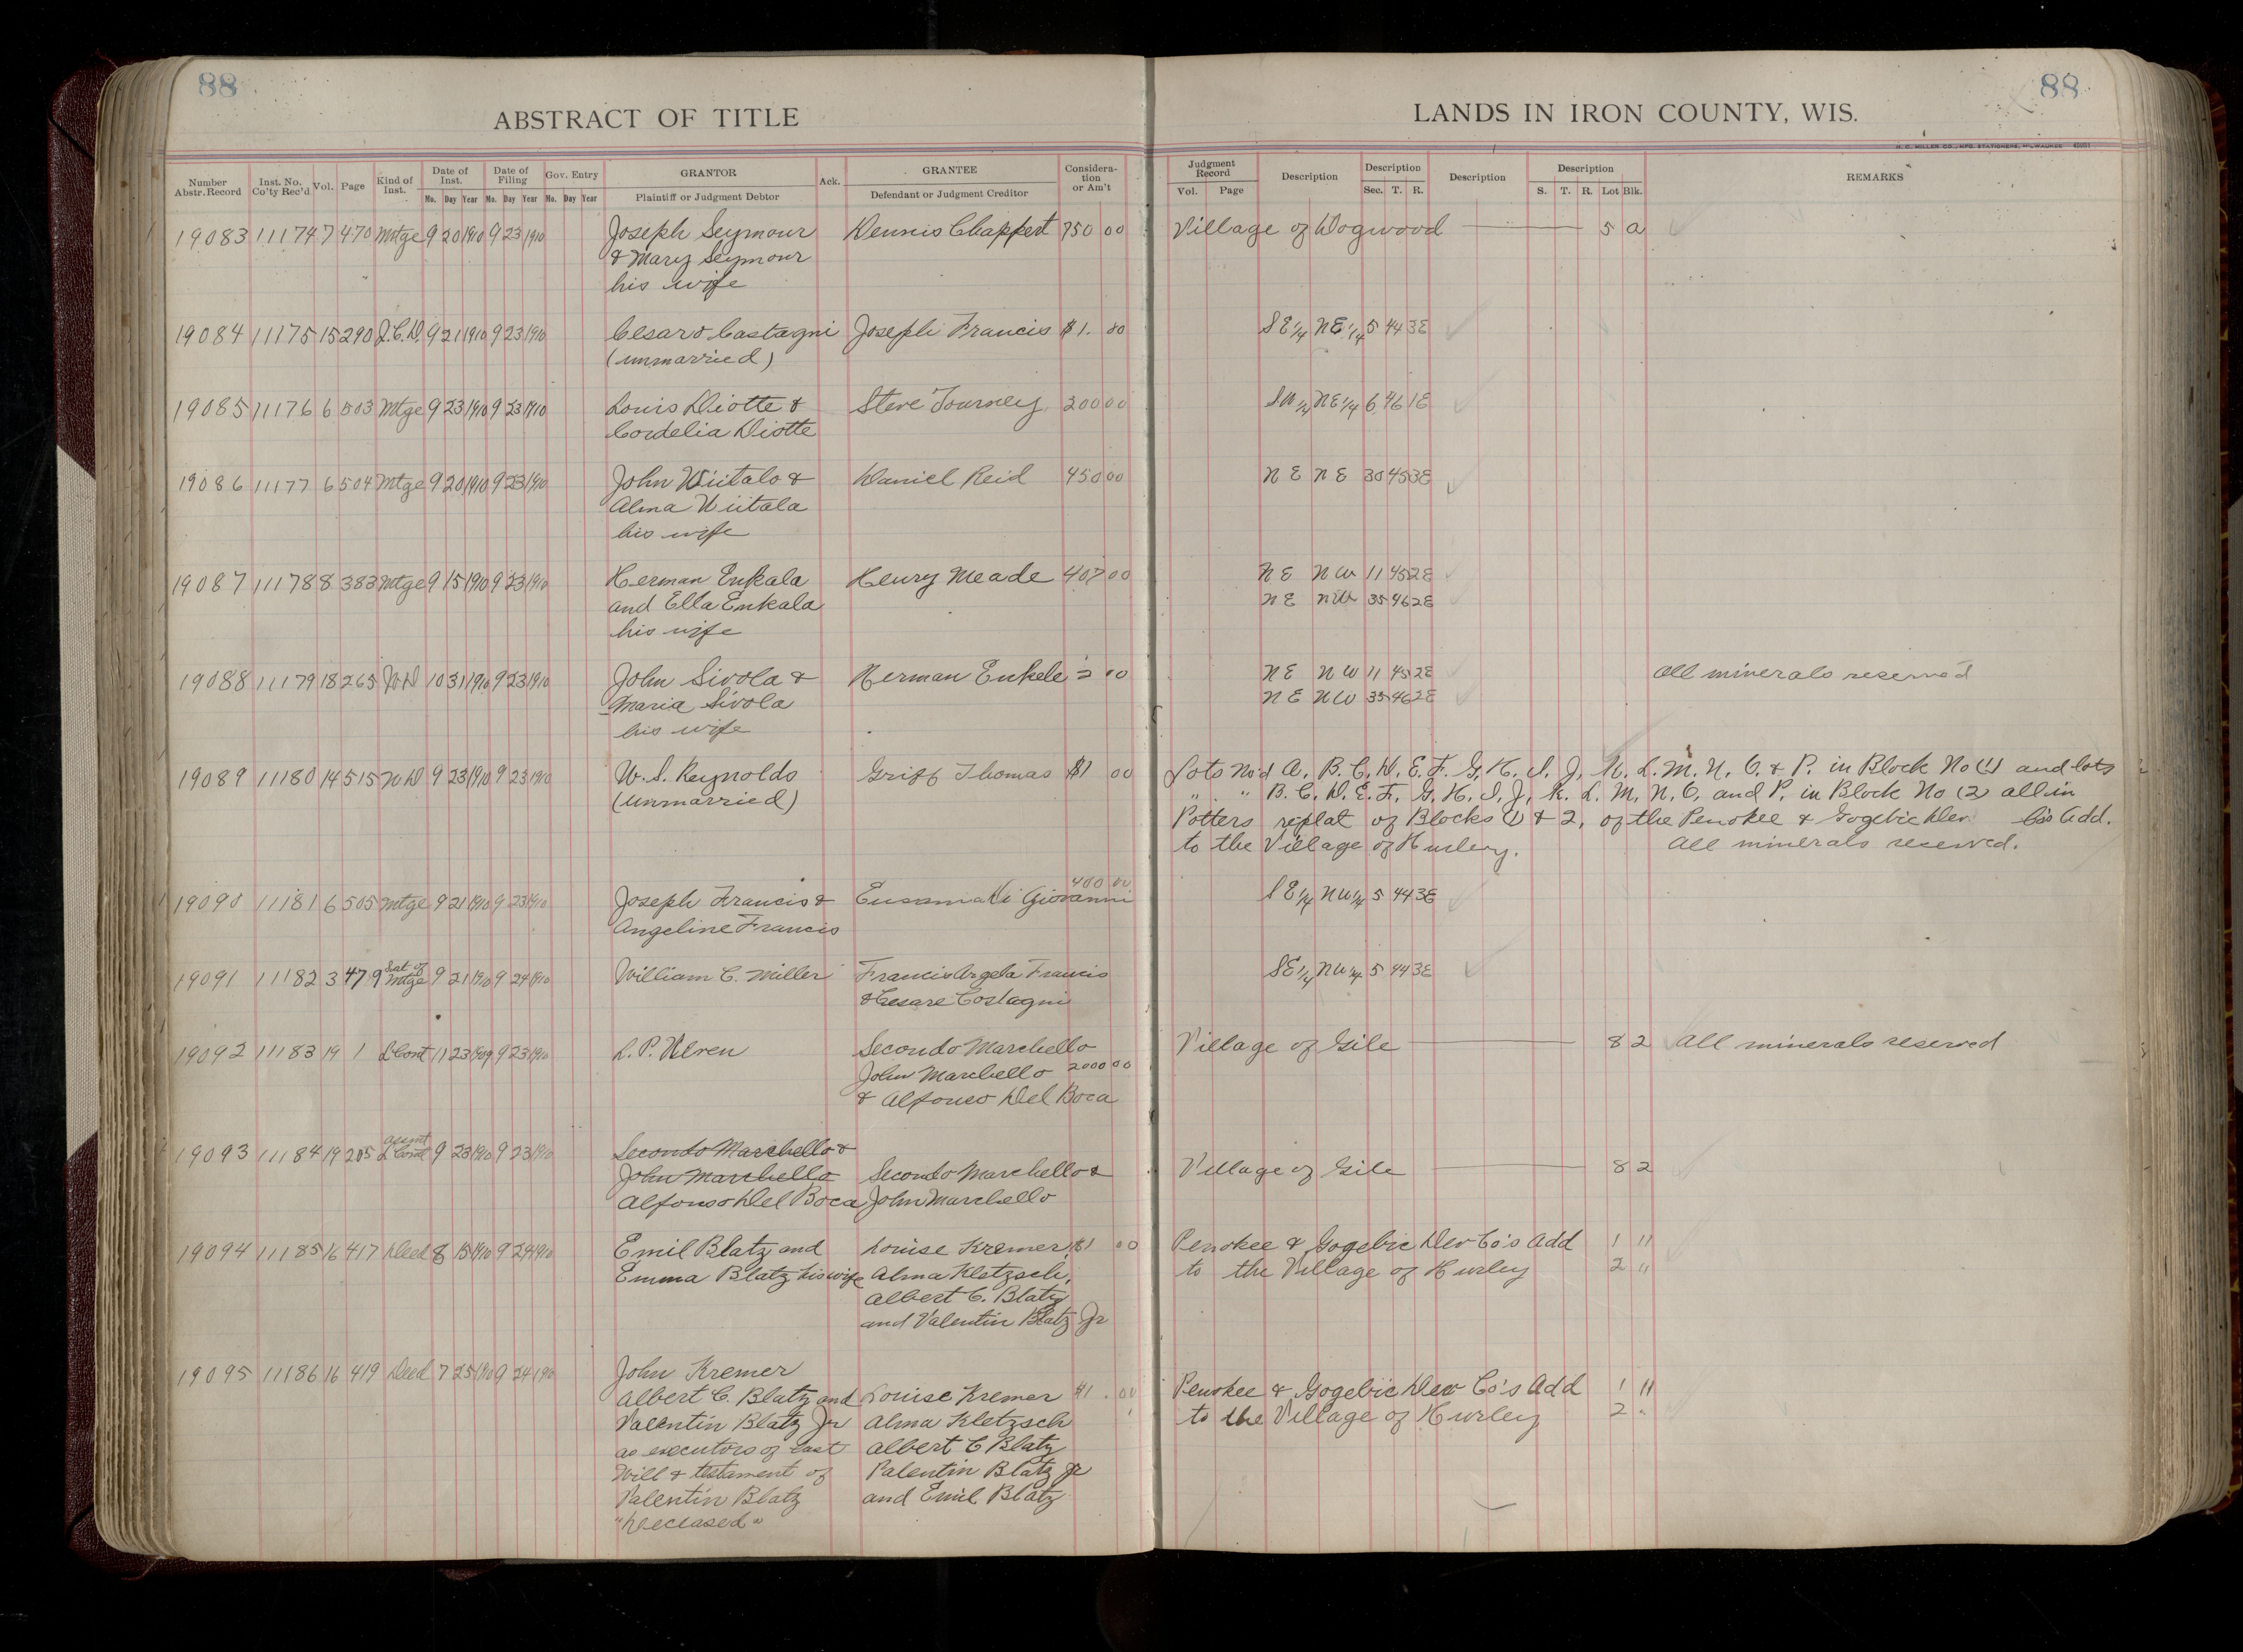 88
88
ABSTRACT OF TITLE
LANDS IN IRON COUNTY, WIS.
H. C. MILLER CO., MFG. STATIONERS, MILWAUKEE
Number Abstr. Record | Inst. No. Co'ty Rec'd | Vol. | Page | Kind of Inst. | Date of Inst. Mo. Day Year | Date of Filing Mo. Day Year | Gov. Entry Mo. Day Year | GRANTOR Plaintiff or Judgment Debtor | Ack. | GRANTEE Defendant or Judgment Creditor | Considera-tion or Am't | Judgment Record Vol. Page | Description | Description Sec. T. R. | Description | Description S. T. R. Lot Blk. | REMARKS
19083 11174 7 470 Mtge 9 20 1910 9 23 1910 Joseph Seymour Dennis Chappert 750 00 Village of Dogwood 5 a
& Mary Seymour
his wife
19084 11175 15 290 Q.C.D. 9 21 1910 9 23 1910 Cesaro Castagni Joseph Francis $1. 00 SE 1/4 NE 1/4 5 44 3E
(unmarried)
19085 11176 6 503 Mtge 9 23 1910 9 23 1910 Louis Diotte & Steve Tourney 200 00 SW 1/4 NE 1/4 6 46 1E
Cordelia Diotte
19086 11177 6 504 Mtge 9 20 1910 9 23 1910 John Wiitala & Daniel Reid 450 00 NE NE 30 45 3E
Alma Wiitala
his wife
19087 11178 8 383 Mtge 9 15 1910 9 23 1910 Herman Enkala Henry Meade 407 00 NE NW 11 45 2E
and Ella Enkala NE NW 35 46 2E
his wife
19088 11179 18 265 WD 10 31 1910 9 23 1910 John Sivola & Herman Enkele 2 00 NE NW 11 45 2E All minerals reserved
Maria Sivola NE NW 35 46 2E
his wife
19089 11180 14 515 WD 9 23 1910 9 23 1910 W. S. Reynolds Griff Thomas $1 00 Lots No'd A. B. C. D. E. F. G. H. I. J. K. L. M. N. O. & P. in Block No (1) and lots
(unmarried) " " B. C. D. E. F. G. H. I. J. K. L. M. N. O. and P. in Block No (2) all in
Potters replat of Blocks (1) & 2, of the Penokee & Gogebic Dev Co's Add.
to the Village of Hurley. All minerals reserved.
19090 11181 6 505 Mtge 9 21 1910 9 23 1910 Joseph Francis & Di Giovanni 400 00 SE 1/4 NW 1/4 5 44 3E
Angeline Francis
19091 11182 3 479 Sat of Mtge 9 21 1910 9 24 1910 William C. Miller Francis Argela Francis SE 1/4 NW 1/4 5 44 3E
& Cesare Costagni
19092 11183 19 1 L Cont 11 23 1909 9 23 1910 L. P. Uren Secondo Marchello Village of Gile 8 2 All minerals reserved
John Marchello 2000 00
& Alfonso Del Boca
19093 11184 19 205 Assmt L Cont 9 23 1910 9 23 1910 Secondo Marchello &
John Marchello Secondo Marchello & Village of Gile 8 2
Alfonso Del Boca John Marchello
19094 11185 16 417 Deed 8 15 1910 9 24 1910 Emil Blatz and Louise Kremer $1 00 Penokee & Gogebic Dev Co's Add 1 11
Emma Blatz his wife Alma Kletzsch, to the Village of Hurley 2 "
Albert C. Blatz
and Valentin Blatz Jr
19095 11186 16 419 Deed 7 25 1910 9 24 1910 John Kremer
Albert C. Blatz and Louise Kremer $1. 00 Penokee & Gogebic Dev Co's Add 1 11
Valentin Blatz Jr Alma Kletzsch to the Village of Hurley 2 "
as executors of last Albert C Blatz
Will & testament of Valentin Blatz Jr
Valentin Blatz and Emil Blatz
"Deceased"